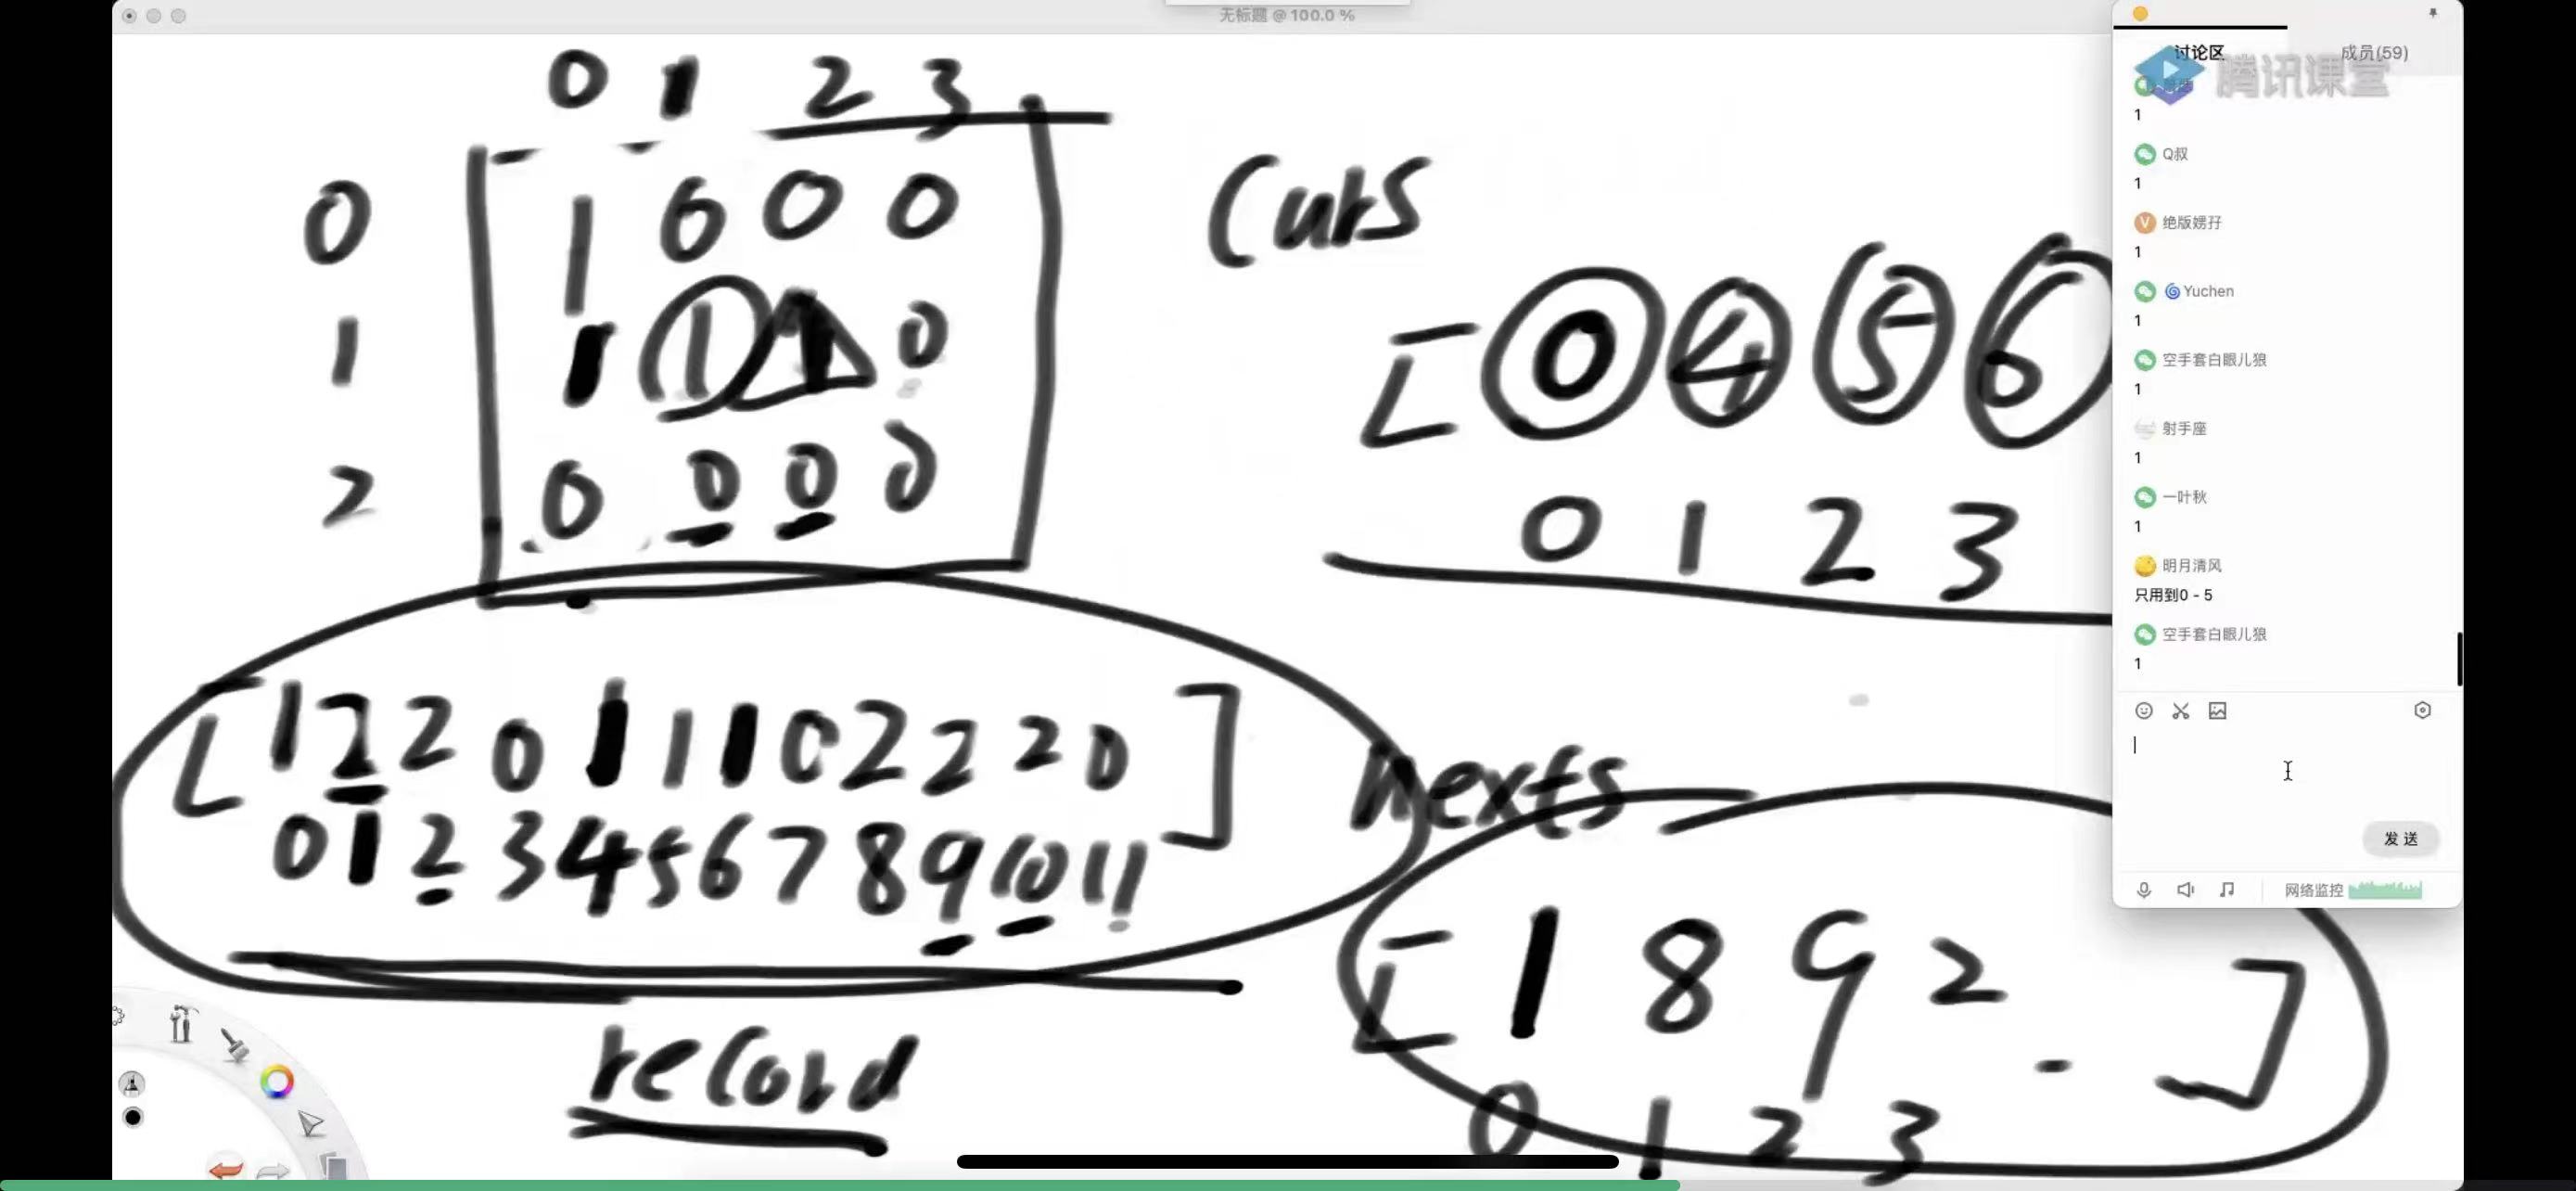 无标题 @ 100.0 %
0 1 2 3
0 1 0 0 0
1 1 1 1 0
2 0 0 0 0
Curs
[ 0 4 5 6
0 1 2 3
[ 1 2 2 0 1 1 1 0 2 2 2 0 ]
0 1 2 3 4 5 6 7 8 9 10 11
record
nexts
[ 1 8 9 2 . ]
0 1 2 3
讨论区 成员(59)
腾讯课堂
1
Q叔
1
绝版娚孖
1
Yuchen
1
空手套白眼儿狼
1
射手座
1
一叶秋
1
明月清风
只用到0 - 5
空手套白眼儿狼
1
发 送
网络监控